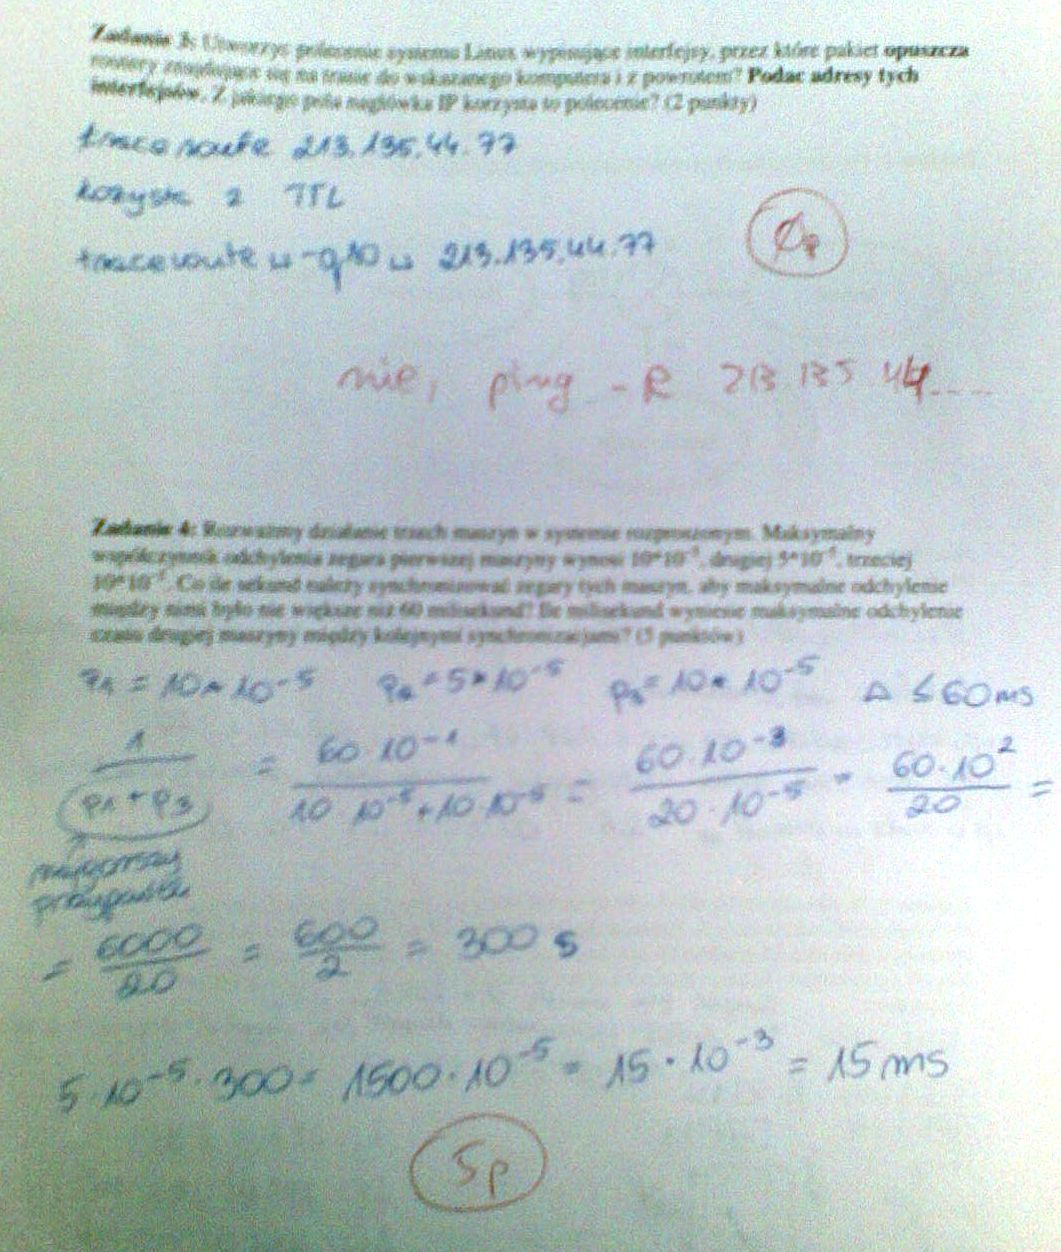 Zadanie 3: Utworzyć polecenie systemu Linux wypisujące interfejsy, przez które pakiet opuszcza
routery znajdujące się na trasie do wskazanego komputera i z powrotem? Podać adresy tych
interfejsów. Z jakiego pola nagłówka IP korzysta to polecenie? (2 punkty)
traceroute 213.135.44.77
kozysta z TTL
0p
traceroute ␣ -q10 ␣ 213.135.44.77
nie, ping -R 213 135 44....
Zadanie 4: Rozważmy działanie trzech maszyn w systemie rozproszonym. Maksymalny
współczynnik odchylenia zegara pierwszej maszyny wynosi 10*10⁻⁵, drugiej 5*10⁻⁵, trzeciej
10*10⁻⁵. Co ile sekund należy synchronizować zegary tych maszyn, aby maksymalne odchylenie
między nimi było nie większe niż 60 milisekund? Ile milisekund wyniesie maksymalne odchylenie
czasu drugiej maszyny między kolejnymi synchronizacjami? (5 punktów)
p₁ = 10 * 10⁻⁵ p₂ = 5 * 10⁻⁵ p₃ = 10 * 10⁻⁵ Δ ≤ 60ms
1 / (p₁ + p₃) = 60·10⁻¹ / (10·10⁻⁵ + 10·10⁻⁵) = 60·10⁻³ / (20·10⁻⁵) = 60·10² / 20 =
najgorszy
przypadek
= 6000 / 20 = 600 / 2 = 300 s
5·10⁻⁵·300 = 1500·10⁻⁵ = 15·10⁻³ = 15 ms
5p